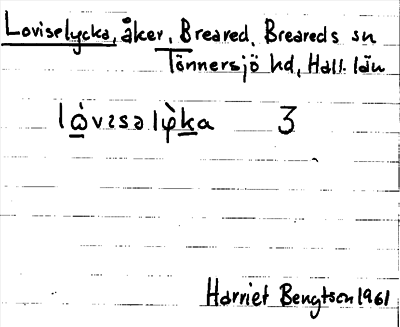 Loviselycka, åker, Breared, Breareds sn
Tönnersjö hd, Hall. län
3
Harriet Bengtson 1961